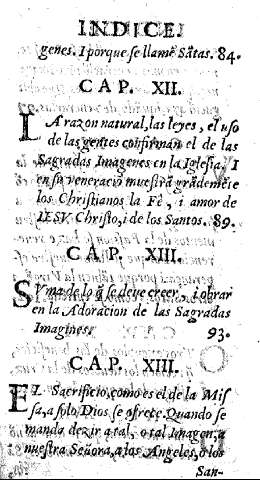 INDICE.
genes. I porque se llamẽ Sãtas. 84.
CAP. XII.
LA razon natural, las leyes, el uso
de las gentes confirman el de las
Sagradas Imagenes en la Iglesia. I
en su veneraciõ muestrã grãdemẽte
los Christianos la Fè, i amor de
IESV Christo, i de los Santos. 89.
CAP. XIII.
SVma de lo q̃ se deve creer, i obrar
en la Adoracion de las Sagradas
Imagines. 93.
CAP. XIII.
EL Sacrificio, como es el de la Mis
sa, a solo Dios se ofrece. Quando se
manda dezir a tal, o tal Imagen, a
nuestra Señora, a los Angeles, o los
San-